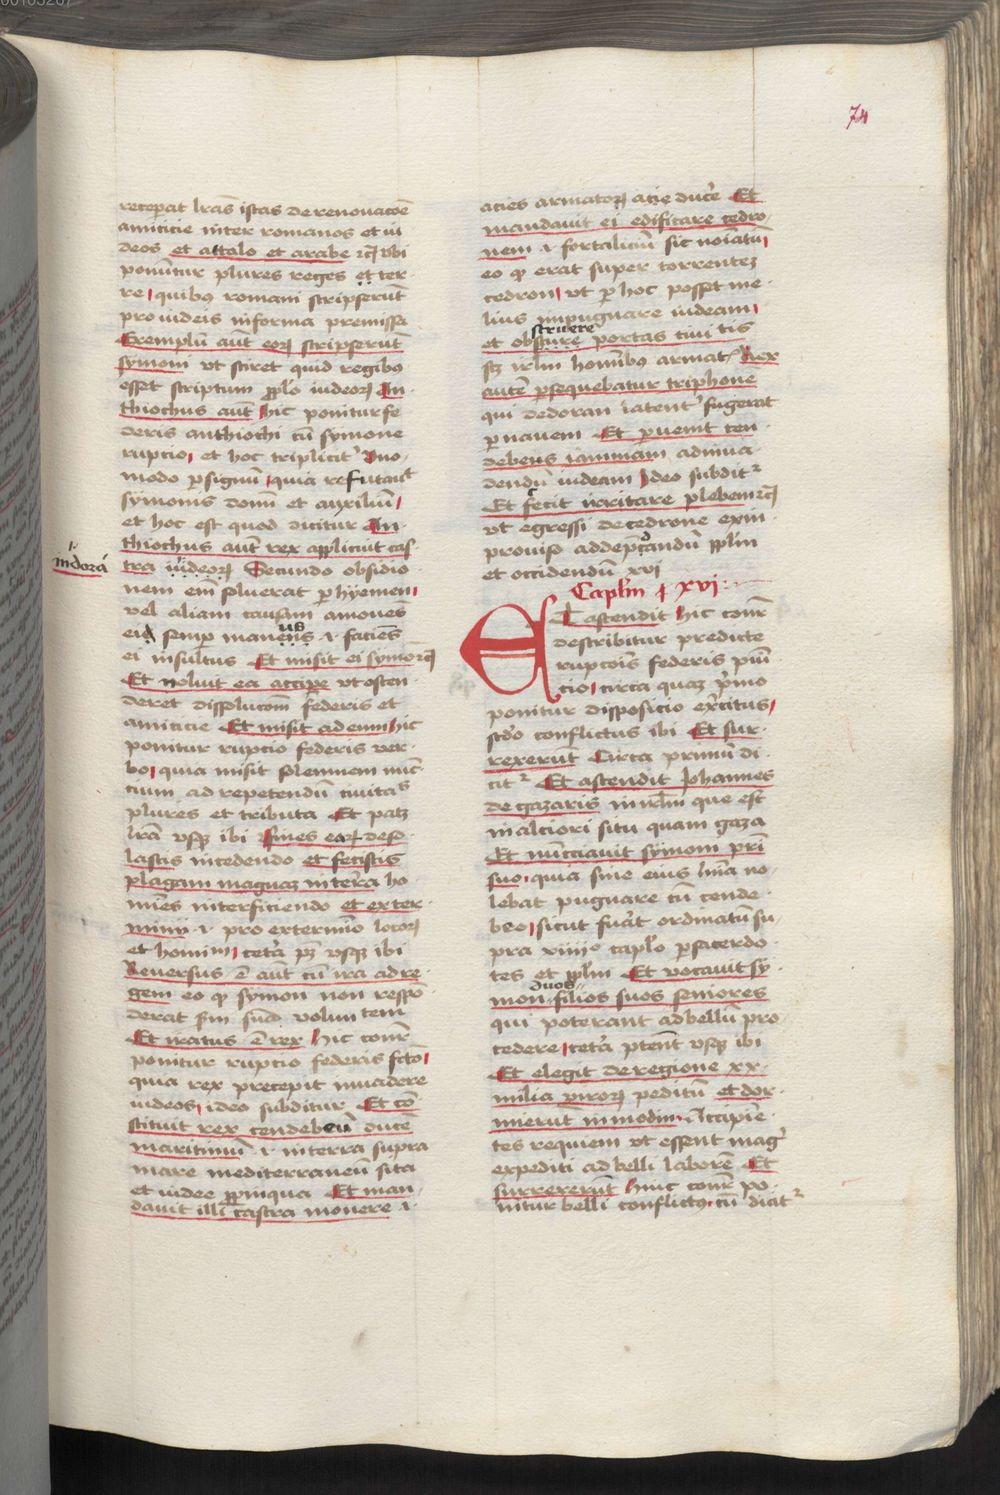 74
receperat lras istas de renouacoe
amiticie inter romanos et iu
deos et attalo et arabe rc vbi
ponuntur plures reges et ter
re quibus romani scripserut
pro iudeis in forma premissa
Exemplu aut eorum scripserut
symoni vt sciret quid regibus
esset scriptum pplo iudeorum An
thiochus aut hic ponitur fe
deris anthiochi cu symone
rupcio et hoc tripliciter Uno
modo per signu quia refutauit
symonis domni et auxiliu
et hoc est quod dicitur An
thiochus aut rex applicuit cas
tra iudeorum Secundo obsidio
in dora
nem eni soluerat per hyemem
vel aliam causam amoues
eis semp manens i facies
us
ei insultus Et misit ei symo rc
Et noluit ea accipe vt osten
deret dissolucom federis et
amiticie Et misit ad eum hic
ponitur rupcio federis ver
bo quia misit solennem nunc
cium ad repetendu ciuitates
plures et tributa Et patz
lra vsq ibi fines earum deso
lastis incedendo et fecistis
plagam magnaz in terra ho
mines interficiendo et exter
minij i pro exterminio locorum
et hominum cetera pz vsq ibi
Reuersus e aut cu ira ad re
gem eo q symon non respon
derat sm sua voluntem
Et iratus e rex hic conr
ponitur rupcio federis fcto
quia rex precepit inuadere
iudeos ideo subditur Et con
stituit rex cendebeu duce
maritimu i in terra supra
mare mediterraneu sita
et iudee ppinqua Et man
dauit illi castra mouere i
acies armatorum acie duce Et
mandauit ei edificare cedro
nem i fortaliciu sic noiatu
eo q erat super torrentez
cedron vt per hoc posset me
lius impugnare iudeam
struere
et obsture portas ciui tis
sz irlm hominibus armatis Rex
autem persequebatur triphone
qui de doran latenter fugerat
per nauem Et peruenit cen
debeus iamniam ad inua
dendu iudeam Ideo subditur
Et fecit irritare plebem rc
vt egressi de cedrone exin
prouiso ad deptandu pplm
et occidendu xvi
Caplm xvi
Et ascendit hic conr
describitur predicte
rupcois federis puni
cio circa quaz primo
ponitur disposicio exercitus
scdo conflictus ibi Et sur
rexerut Circa primu di
citur Et ascendit Johannes
de gazaris in irlm que est
in alciori situ quam gaza
Et nuncciauit symoni pri
suo quia sine eius lnia no
lebat pugnare cu cende
beo sicut fuerat ordinatu su
pra xiiii caplo per sacerdo
tes et pplm Et vocauit sy
duos
mon filios suos seniores
qui poterant ad bellu pro
cedere cetera patent vsq ibi
Et elegit de regione xx
milia virorum peditu et dor
mierut in modin i capien
tes requiem vt essent magis
expediti ad belli labore Et
surrexerut hinc conr po
nitur belli conflictus cu dicitur